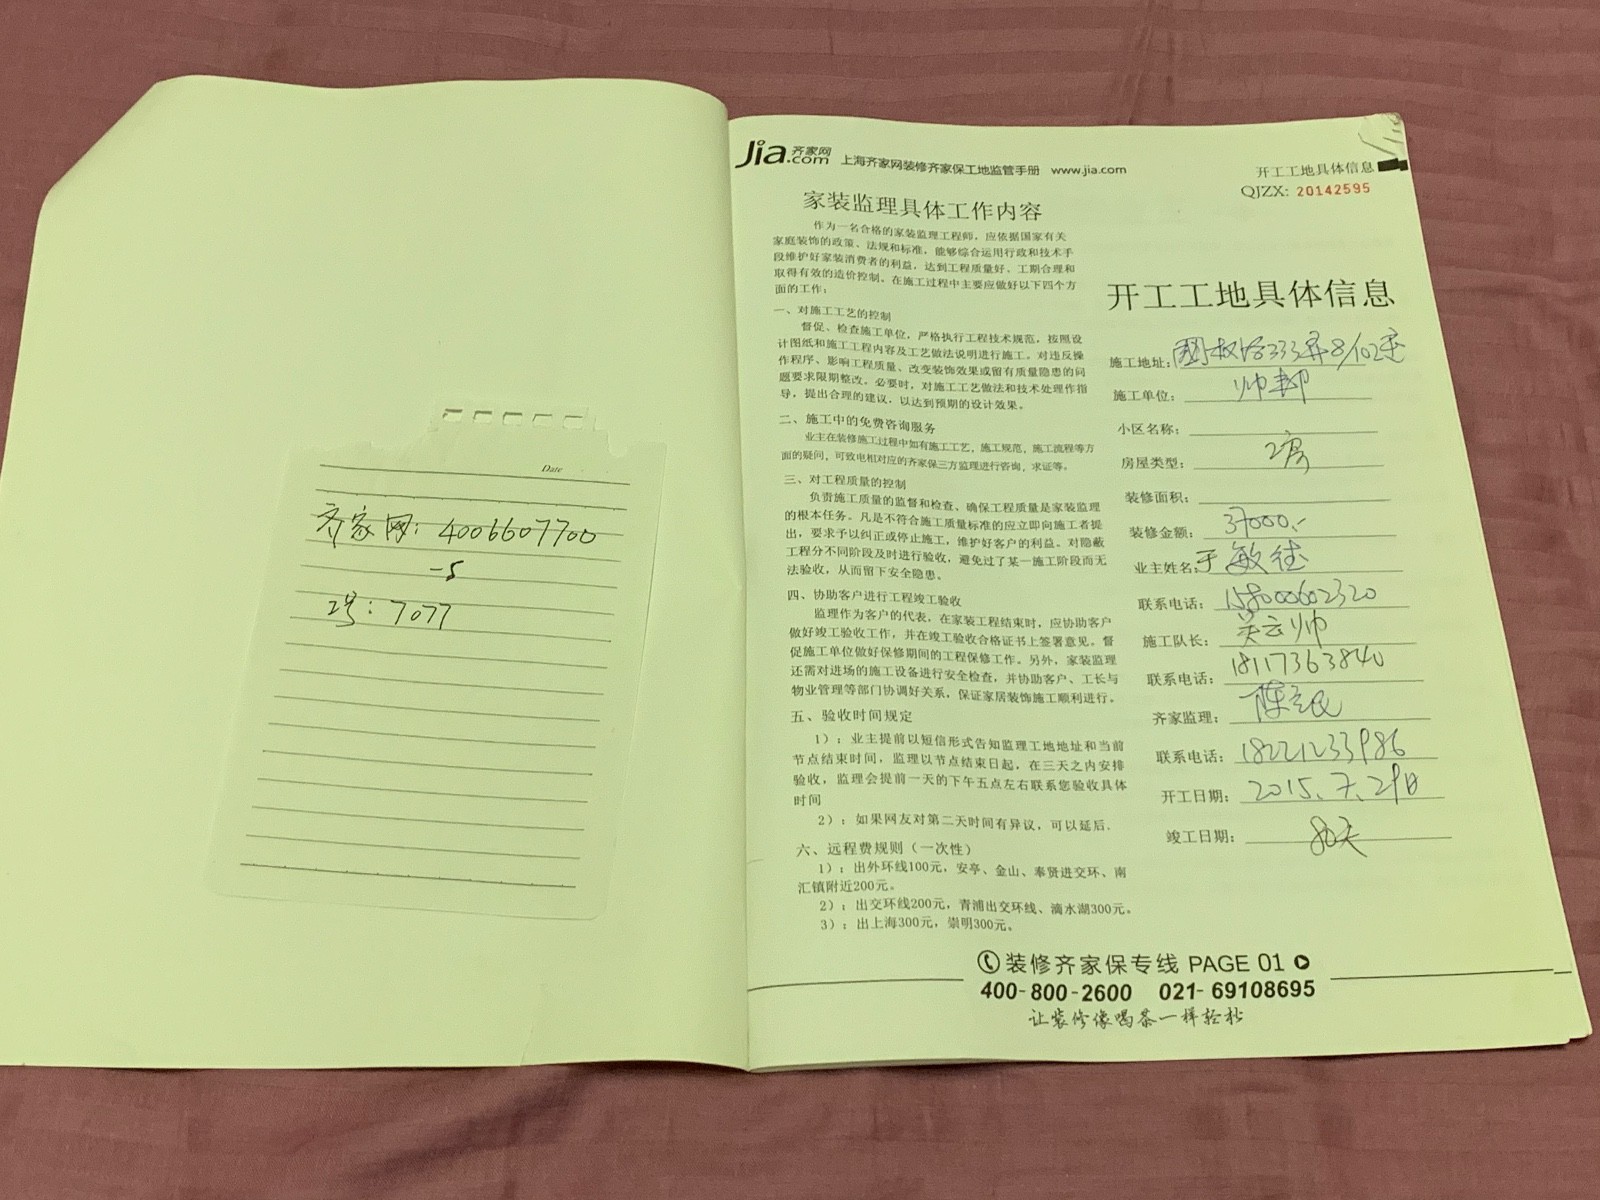 Date
齐家网：4006607700
-5
2号：7077
Jia.com 齐家网 上海齐家网装修齐家保工地监管手册 www.jia.com
家装监理具体工作内容
作为一名合格的家装监理工程师，应依据国家有关
家庭装饰的政策、法规和标准，能够综合运用行政和技术手
段维护好家装消费者的利益，达到工程质量好、工期合理和
取得有效的造价控制。在施工过程中主要应做好以下四个方
面的工作：
一、对施工工艺的控制
督促、检查施工单位，严格执行工程技术规范，按照设
计图纸和施工工程内容及工艺做法说明进行施工。对违反操
作程序、影响工程质量、改变装饰效果或留有质量隐患的问
题要求限期整改。必要时，对施工工艺做法和技术处理作指
导，提出合理的建议，以达到预期的设计效果。
二、施工中的免费咨询服务
业主在装修施工过程中如有施工工艺，施工规范，施工流程等方
面的疑问，可致电相对应的齐家保三方监理进行咨询，求证等。
三、对工程质量的控制
负责施工质量的监督和检查、确保工程质量是家装监理
的根本任务。凡是不符合施工质量标准的应立即向施工者提
出，要求予以纠正或停止施工，维护好客户的利益。对隐蔽
工程分不同阶段及时进行验收，避免过了某一施工阶段而无
法验收，从而留下安全隐患。
四、协助客户进行工程竣工验收
监理作为客户的代表，在家装工程结束时，应协助客户
做好竣工验收工作，并在竣工验收合格证书上签署意见。督
促施工单位做好保修期间的工程保修工作。另外，家装监理
还需对进场的施工设备进行安全检查，并协助客户、工长与
物业管理等部门协调好关系，保证家居装饰施工顺利进行。
五、验收时间规定
1）：业主提前以短信形式告知监理工地地址和当前
节点结束时间，监理以节点结束日起，在三天之内安排
验收，监理会提前一天的下午五点左右联系您验收具体
时间
2）：如果网友对第二天时间有异议，可以延后。
六、远程费规则（一次性）
1）：出外环线100元，安亭、金山、奉贤进交环、南
汇镇附近200元。
2）：出交环线200元，青浦出交环线、滴水湖300元。
3）：出上海300元，崇明300元。
开工工地具体信息
QJZX: 20142595
开工工地具体信息
施工地址：国权路333弄8/102室
施工单位：帅邦
小区名称：
房屋类型：2房
装修面积：
装修金额：37000.-
业主姓名：于敏
联系电话：15800602320
施工队长：吴云帅
联系电话：18117363840
齐家监理：陈立民
联系电话：18221233986
开工日期：2015.7.29日
竣工日期：80天
装修齐家保专线 PAGE 01
400-800-2600 021-69108695
让装修像喝茶一样轻松